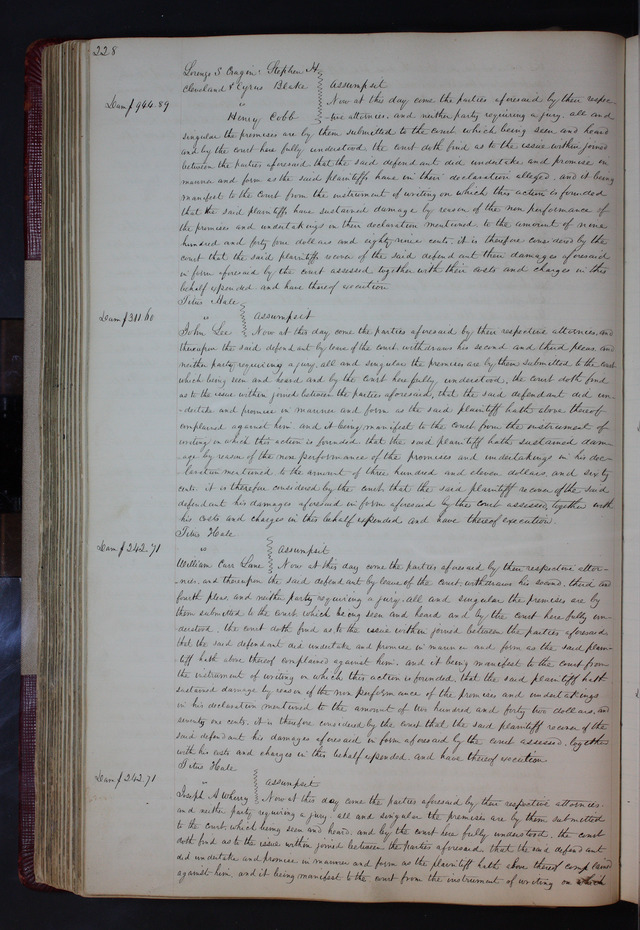 228
Lorenzo S. Cragin, Stephen H.
Cleveland & Cyrus Blake } Assumpsit
Dam $944.89 " Now at this day come the parties aforesaid by their respec-
Henry Cobb -tive attornies, and neither party requiring a jury, all and
singular the premises are by them submitted to the court which being seen and heard
and by the court here fully understood, the court doth find as to the issue within joined
between the parties aforesaid that the said defendant did undertake and promise in
manner and form as the said plaintiffs have in their declaration alleged, and it being
manifest to the court from the instrument of writing on which this action is founded
that the said plaintiffs have sustained damage by reason of the non performance of
the promises and undertakings in their declaration mentioned to the amount of nine
hundred and forty four dollars and eighty nine cents, it is therefore considered by the
court that the said plaintiffs recover of the said defendant their damages aforesaid
in form aforesaid by the court assessed together with their costs and charges in this
behalf expended, and have thereof execution
Titus Hale
Dam $311.60 " } Assumpsit
John Lee Now at this day come the parties aforesaid by their respective attornies, and
thereupon the said defendant by leave of the court withdraws his second and third pleas, and
neither party requiring a jury, all and singular the premises are by them submitted to the court
which being seen and heard and by the court here fully understood, the court doth find
as to the issue within joined between the parties aforesaid, that the said defendant did un-
-dertake and promise in manner and form as the said plaintiff hath above thereof
complained against him and it being manifest to the court from the instrument of
writing on which this action is founded, that the said plaintiff hath sustained dam-
-age by reason of the non performance of the promises and undertakings in his dec-
-laration mentioned to the amount of three hundred and eleven dollars, and sixty
cents, it is therefore considered by the court, that the said plaintiff recover of the said
defendant his damages aforesaid in form aforesaid by the court assessed, together with
his costs and charges in this behalf expended and have thereof execution.
Titus Hale
Dam $242.71 " } Assumpsit
William Carr Lane Now at this day come the parties aforesaid by their respective attor-
-nies, and thereupon the said defendant by leave of the court, withdraws his second, third and
fourth pleas, and neither party requiring a jury, all and singular the premises are by
them submitted to the court which being seen and heard and by the court here fully un-
derstood, the court doth find as to the issue within joined between the parties aforesaid,
that the said defendant did undertake and promise in manner and form as the said plain-
-tiff hath above thereof complained against him, and it being manifest to the court from
the instrument of writing on which this action is founded, that the said plaintiff hath
sustained damage by reason of the non performance of the promises and undertakings
in his declaration mentioned to the amount of two hundred and forty two dollars, and
seventy one cents, it is therefore considered by the court that the said plaintiff recover of the
said defendant his damages aforesaid in form aforesaid by the court assessed, together
with his costs and charges in this behalf expended, and have thereof execution
Titus Hale
Dam $242.71 " } Assumpsit
Joseph A Wherry Now at this day come the parties aforesaid by their respective attornies,
and neither party requiring a jury, all and singular the premises are by them submitted
to the court, which being seen and heard, and by the court here fully understood, the court
doth find as to the issue within joined between the parties aforesaid, that the said defendant
did undertake and promise in manner and form as the plaintiff hath above thereof complained
against him, and it being manifest to the court from the instrument of writing on which